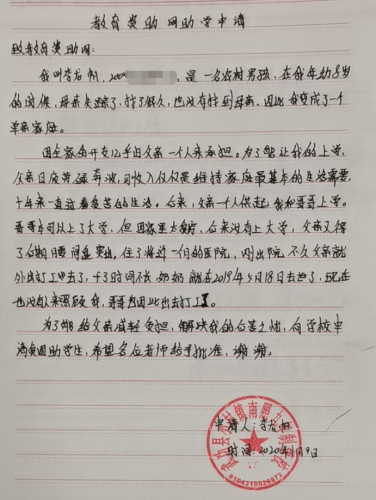 教育资助网助学申请
致教育资助网:
我叫李龙帆, 200 , 是一名农村男孩, 在我年幼8岁
的时候, 母亲失踪了, 找了很久, 也没有找到母亲, 因此我变成了一个
单亲家庭。
因全家的开支几乎由父亲一个人来承担。为了能让我的上学,
父亲日夜劳碌奔波, 可收入仅仅是维持家庭最基本的生活需要,
十年来一直过着贫苦的生活。后来, 父亲一人供起我和哥哥上学。
哥哥考入上了大学, 但因家里太贫穷, 后来没有上大学, 父亲又得
了后期腰间盘突出, 住了将近一个月的医院, 刚出院不久父亲就
外出打工去了, 干了时间不长奶奶就在2019年5月18日去世了, 现在
也没有人来照顾我, 哥哥也因此出去打工。
为了能给父亲减轻负担, 解决我的后基之忧, 向学校申
请贫困助学生, 希望各位老师给予批准, 谢谢。
申请人: 李龙帆
时间: 2020年1月9日